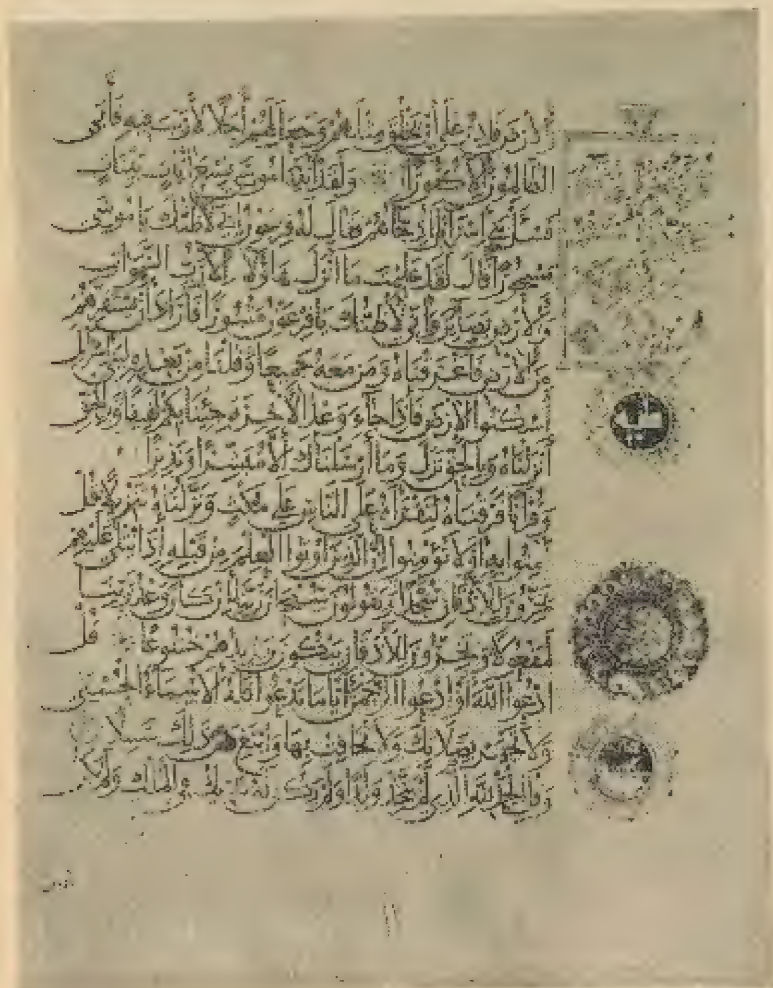 الأرض قادر على أن يخلق مثلهم وجعل لهم أجلا لا ريب فيه فأبى
الظالمون إلا كفورا ولقد آتينا موسى تسع آيات بينات
فسئل بني إسرائيل إذ جاءهم فقال له فرعون إني لأظنك يا موسى
مسحورا قال لقد علمت ما أنزل هاؤلاء إلا رب السموات
والأرض بصائر وإني لأظنك يا فرعون مثبورا فأراد أن يستفزهم
من الأرض فأغرقناه ومن معه جميعا وقلنا من بعده لبني إسرائيل
اسكنوا الأرض فإذا جاء وعد الآخرة جئنا بكم لفيفا وبالحق
أنزلناه وبالحق نزل وما أرسلناك إلا مبشرا ونذيرا
وقرآنا فرقناه لتقرأه على الناس على مكث ونزلناه تنزيلا قل
آمنوا به أو لا تؤمنوا إن الذين أوتوا العلم من قبله إذا يتلى عليهم
يخرون للأذقان سجدا ويقولون سبحان ربنا إن كان وعد ربنا
لمفعولا ويخرون للأذقان يبكون ويزيدهم خشوعا قل
ادعوا الله أو ادعوا الرحمن أيا ما تدعوا فله الأسماء الحسنى
ولا تجهر بصلاتك ولا تخافت بها وابتغ بين ذلك سبيلا
وقل الحمد لله الذي لم يتخذ ولدا ولم يكن له شريك في الملك ولم يكن